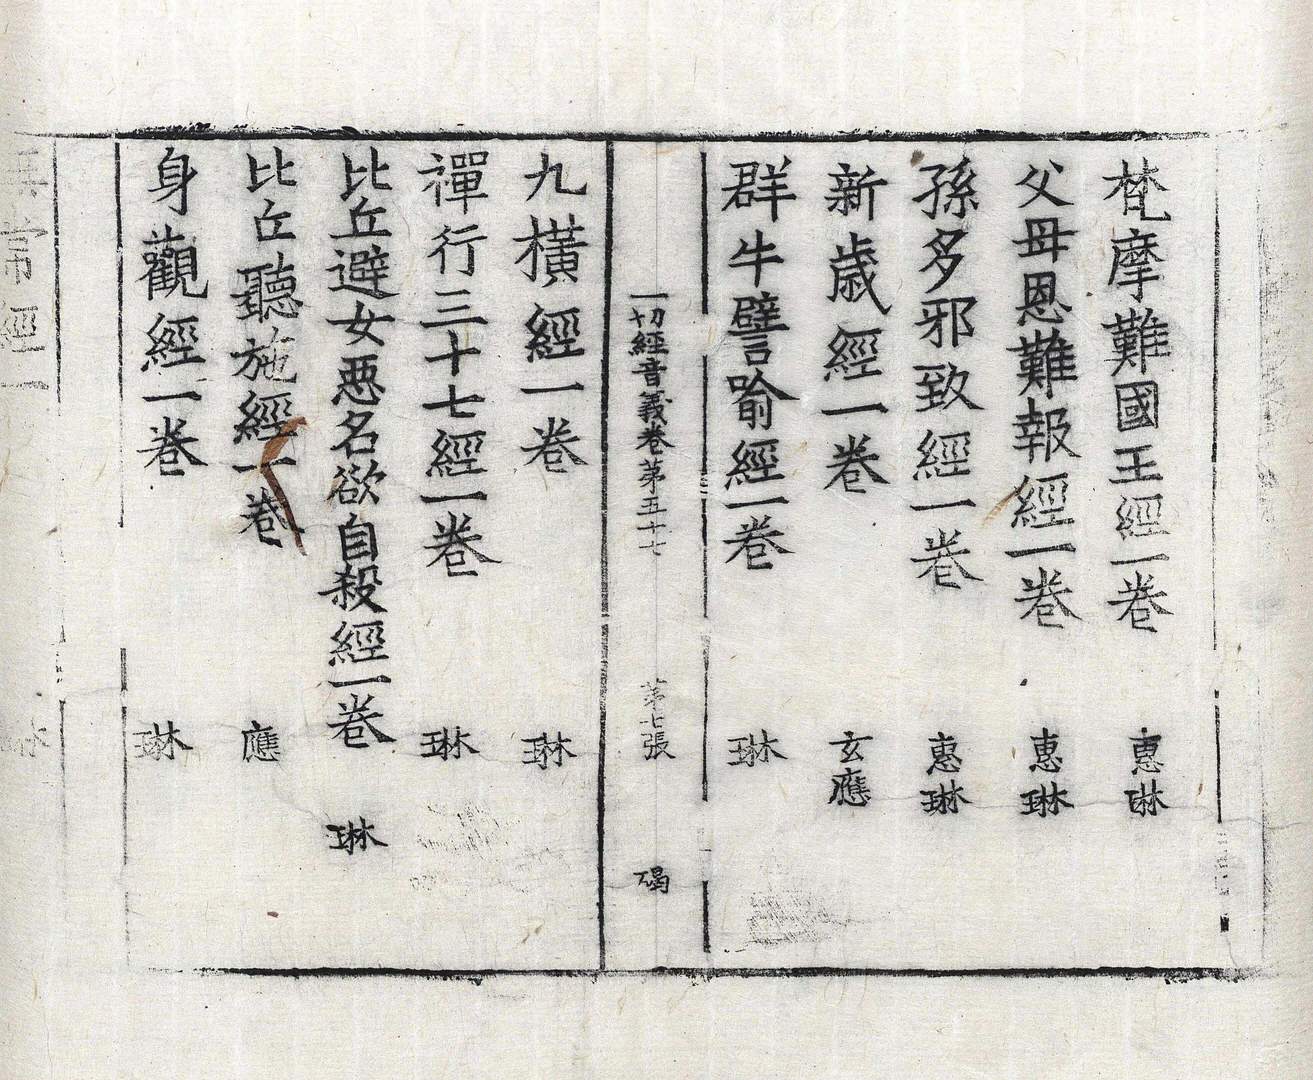 梵摩難國王經一卷 惠琳
父母恩難報經一卷 惠琳
孫多邪致經一卷 惠琳
新歲經一卷 玄應
群牛譬喻經一卷 琳
一切經音義卷第五十七 第七張 碣
九橫經一卷 琳
禪行三十七經一卷 琳
比丘避女惡名欲自殺經一卷 琳
比丘聽施經一卷 應
身觀經一卷 琳
常經一